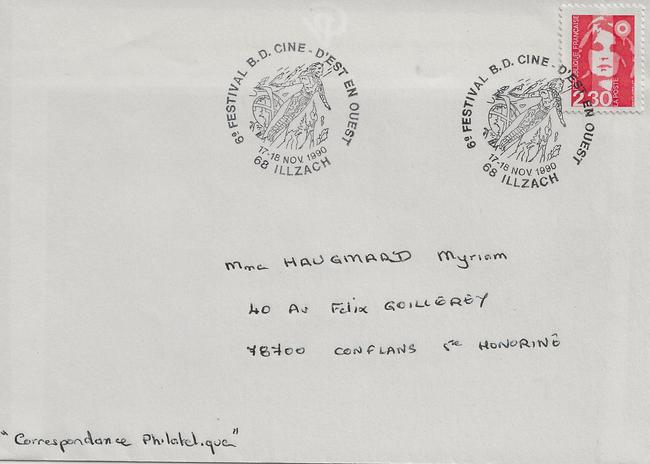 6e FESTIVAL B.D. CINE - D'EST EN OUEST
17-18 NOV. 1990
68 ILLZACH
6e FESTIVAL B.D. CINE - D'EST EN OUEST
17-18 NOV. 1990
68 ILLZACH
REPUBLIQUE FRANÇAISE
2,30
LA POSTE
Mme HAUGMARD Myriam
40 Av Félix GOILLEREY
78700 CONFLANS Ste HONORINE
"Correspondance Philatélique"